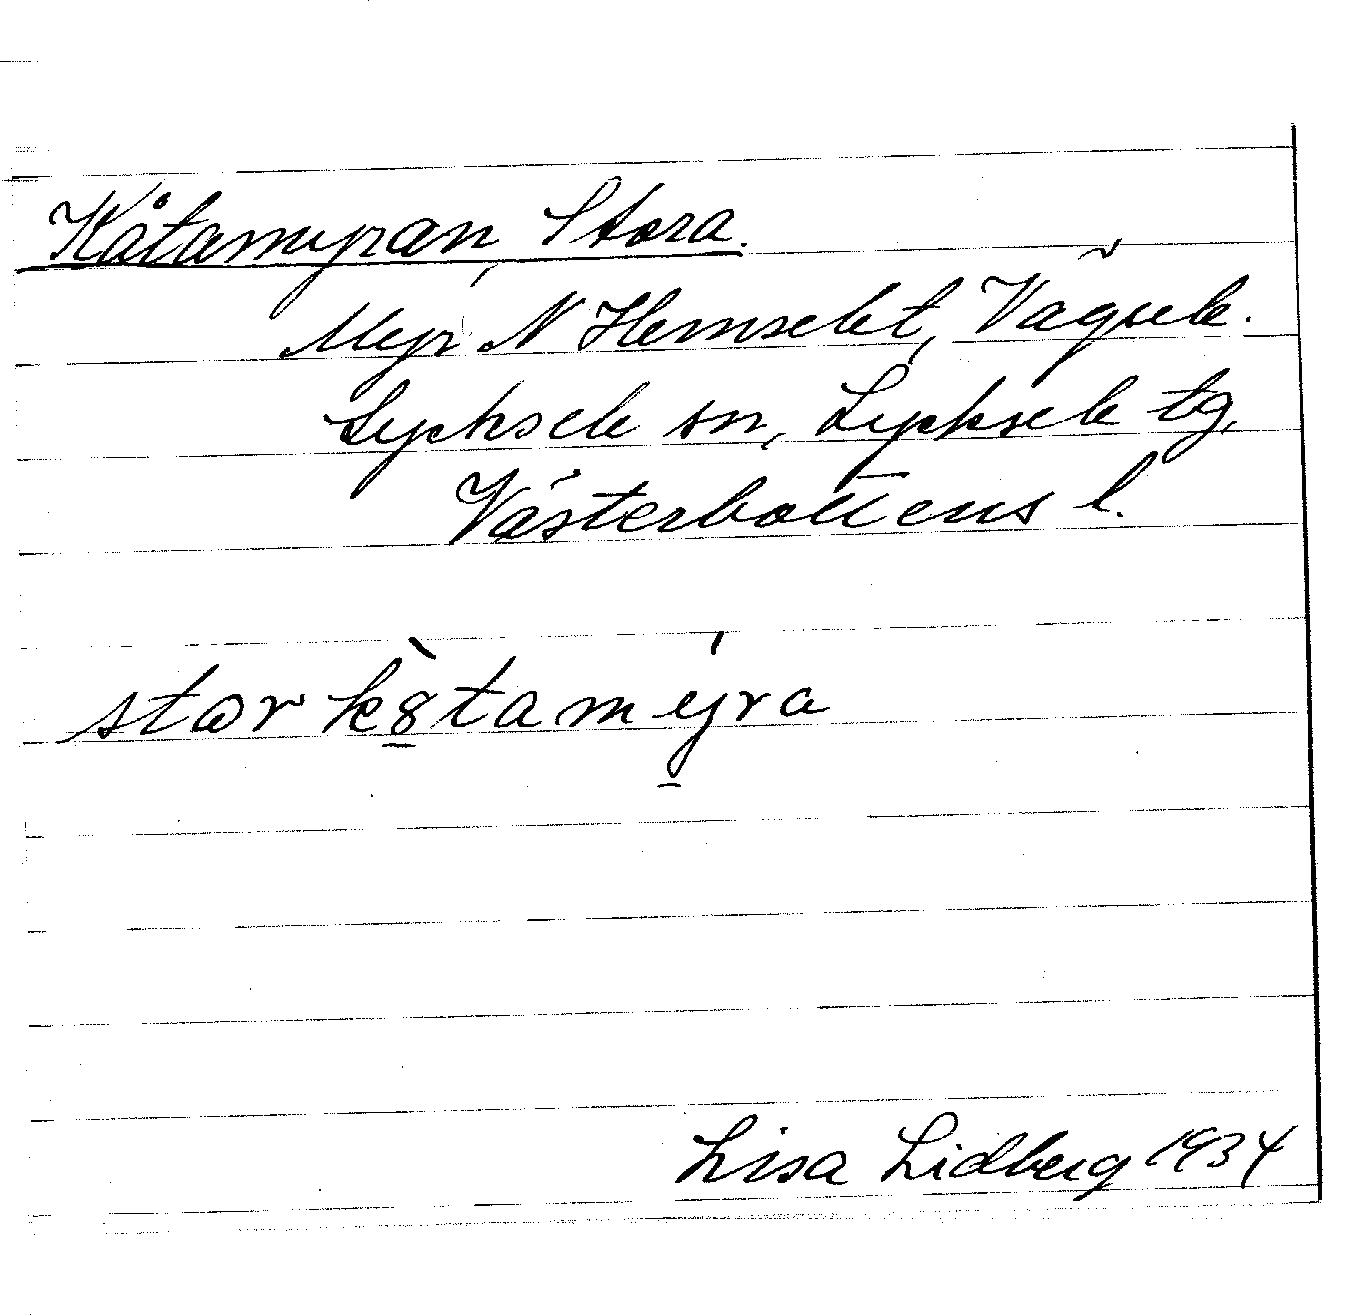 Kåtamyran, Stora.
Myr N Hemsele, Vägsele.
Lycksele sn, Lycksele tg,
Västerbottens l.
stor kötamyra
Lisa Lidberg 1934